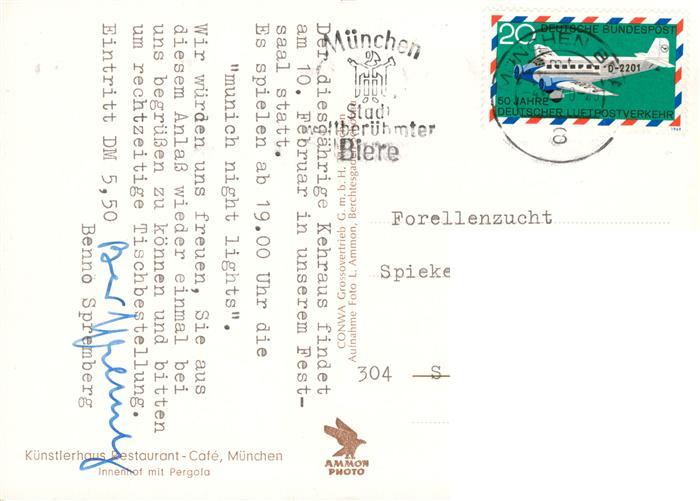 Der diesjährige Kehraus findet
am 10. Februar in unserem Fest-
saal statt.
Es spielen ab 19.00 Uhr die
"munich night lights".
Wir würden uns freuen, Sie aus
diesem Anlaß wieder einmal bei
uns begrüßen zu können und bitten
um rechtzeitige Tischbestellung.
Eintritt DM 5,50
Benno Spremberg
Künstlerhaus Restaurant-Café, München
Innenhof mit Pergola
CONWA Grossovertrieb G.m.b.H.
Aufnahme Foto L. Ammon, Berchtesgaden
AMMON
PHOTO
München
Stadt
weltberühmter
Biere
20 DEUTSCHE BUNDESPOST
D-2201
50 JAHRE
DEUTSCHER LUFTPOSTVERKEHR
1969
MÜNCHEN
Forellenzucht
Spieke
304 S